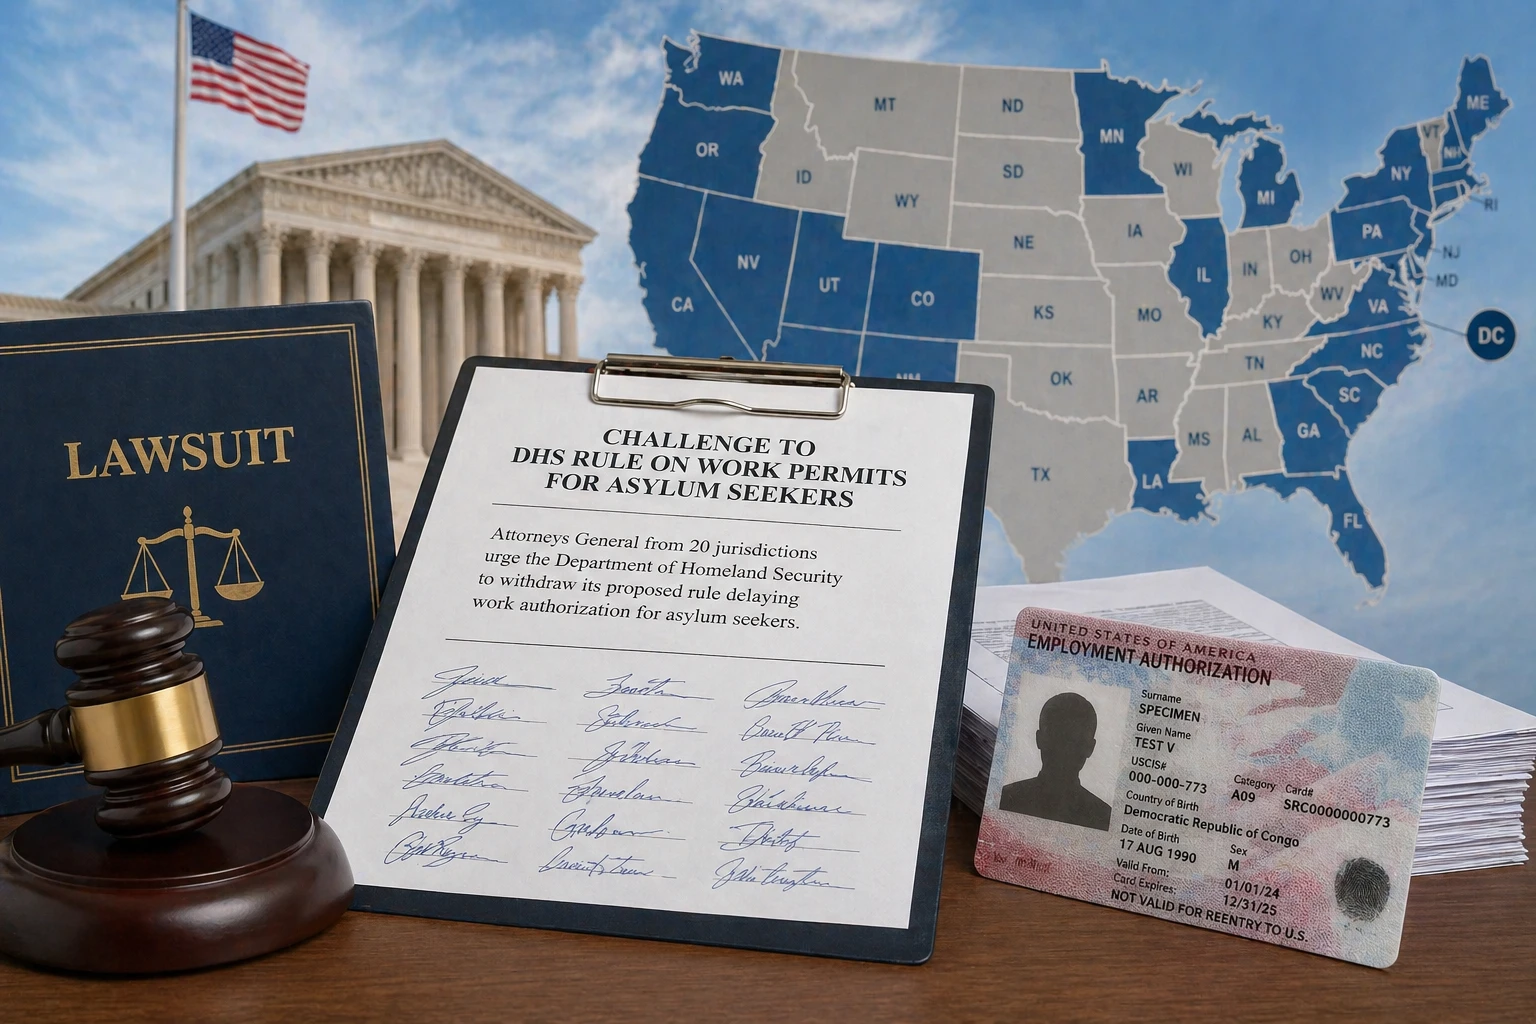 LAWSUIT
CHALLENGE TO
DHS RULE ON WORK PERMITS
FOR ASYLUM SEEKERS
Attorneys General from 20 jurisdictions
urge the Department of Homeland Security
to withdraw its proposed rule delaying
work authorization for asylum seekers.
WA
MT
ND
MN
ME
VT
NH
OR
ID
SD
WI
NY
MI
RI
WY
IA
PA
NE
NV
UT
CO
IL
IN
OH
NJ
MD
WV
VA
CA
KS
MO
KY
DC
NC
TN
OK
AR
SC
NM
MS
AL
GA
TX
LA
FL
UNITED STATES OF AMERICA
EMPLOYMENT AUTHORIZATION
Surname
SPECIMEN
Given Name
TEST V
USCIS# Category Card#
000-000-773 A09 SRC0000000773
Country of Birth
Democratic Republic of Congo
Date of Birth Sex
17 AUG 1990 M
Valid From: 01/01/24
Card Expires: 12/31/25
NOT VALID FOR REENTRY TO U.S.